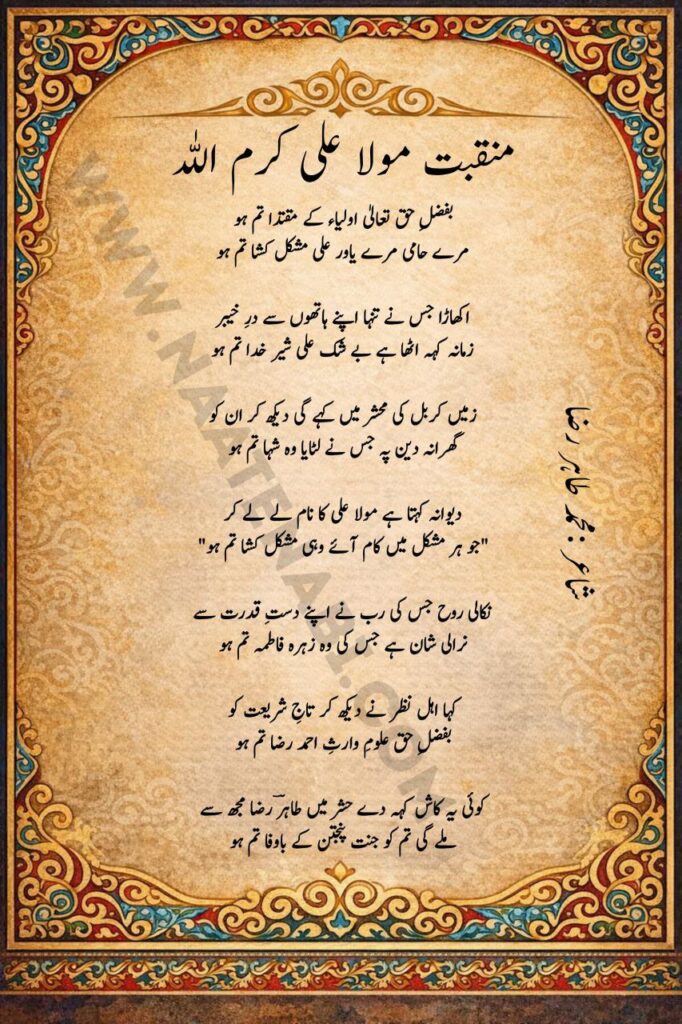 منقبت مولا علی کرم اللہ
بفضلِ حق تعالیٰ اولیاء کے مقتدا تم ہو
مرے حامی مرے یاور علی مشکل کشا تم ہو
اکھاڑا جس نے تنہا اپنے ہاتھوں سے درِ خیبر
زمانہ کہہ اٹھا ہے بے شک علی شیر خدا تم ہو
زمیں کربل کی محشر میں کہے گی دیکھ کر ان کو
گھرانہ دین پہ جس نے لٹایا وہ شہا تم ہو
دیوانہ کہتا ہے مولا علی کا نام لے لے کر
"جو ہر مشکل میں کام آئے وہی مشکل کشا تم ہو"
نکالی روح جس کی رب نے اپنے دستِ قدرت سے
نرالی شان ہے جس کی وہ زہرہ فاطمہ تم ہو
کہا اہل نظر نے دیکھ کر تاجِ شریعت کو
بفضلِ حق علومِ وارثِ احمد رضا تم ہو
کوئی یہ کاش کہہ دے حشر میں طاہرؔ رضا مجھ سے
ملے گی تم کو جنت پنجتن کے باوفا تم ہو
شاعر :محمد طاہر رضا
WWW.NAATENABI.COM